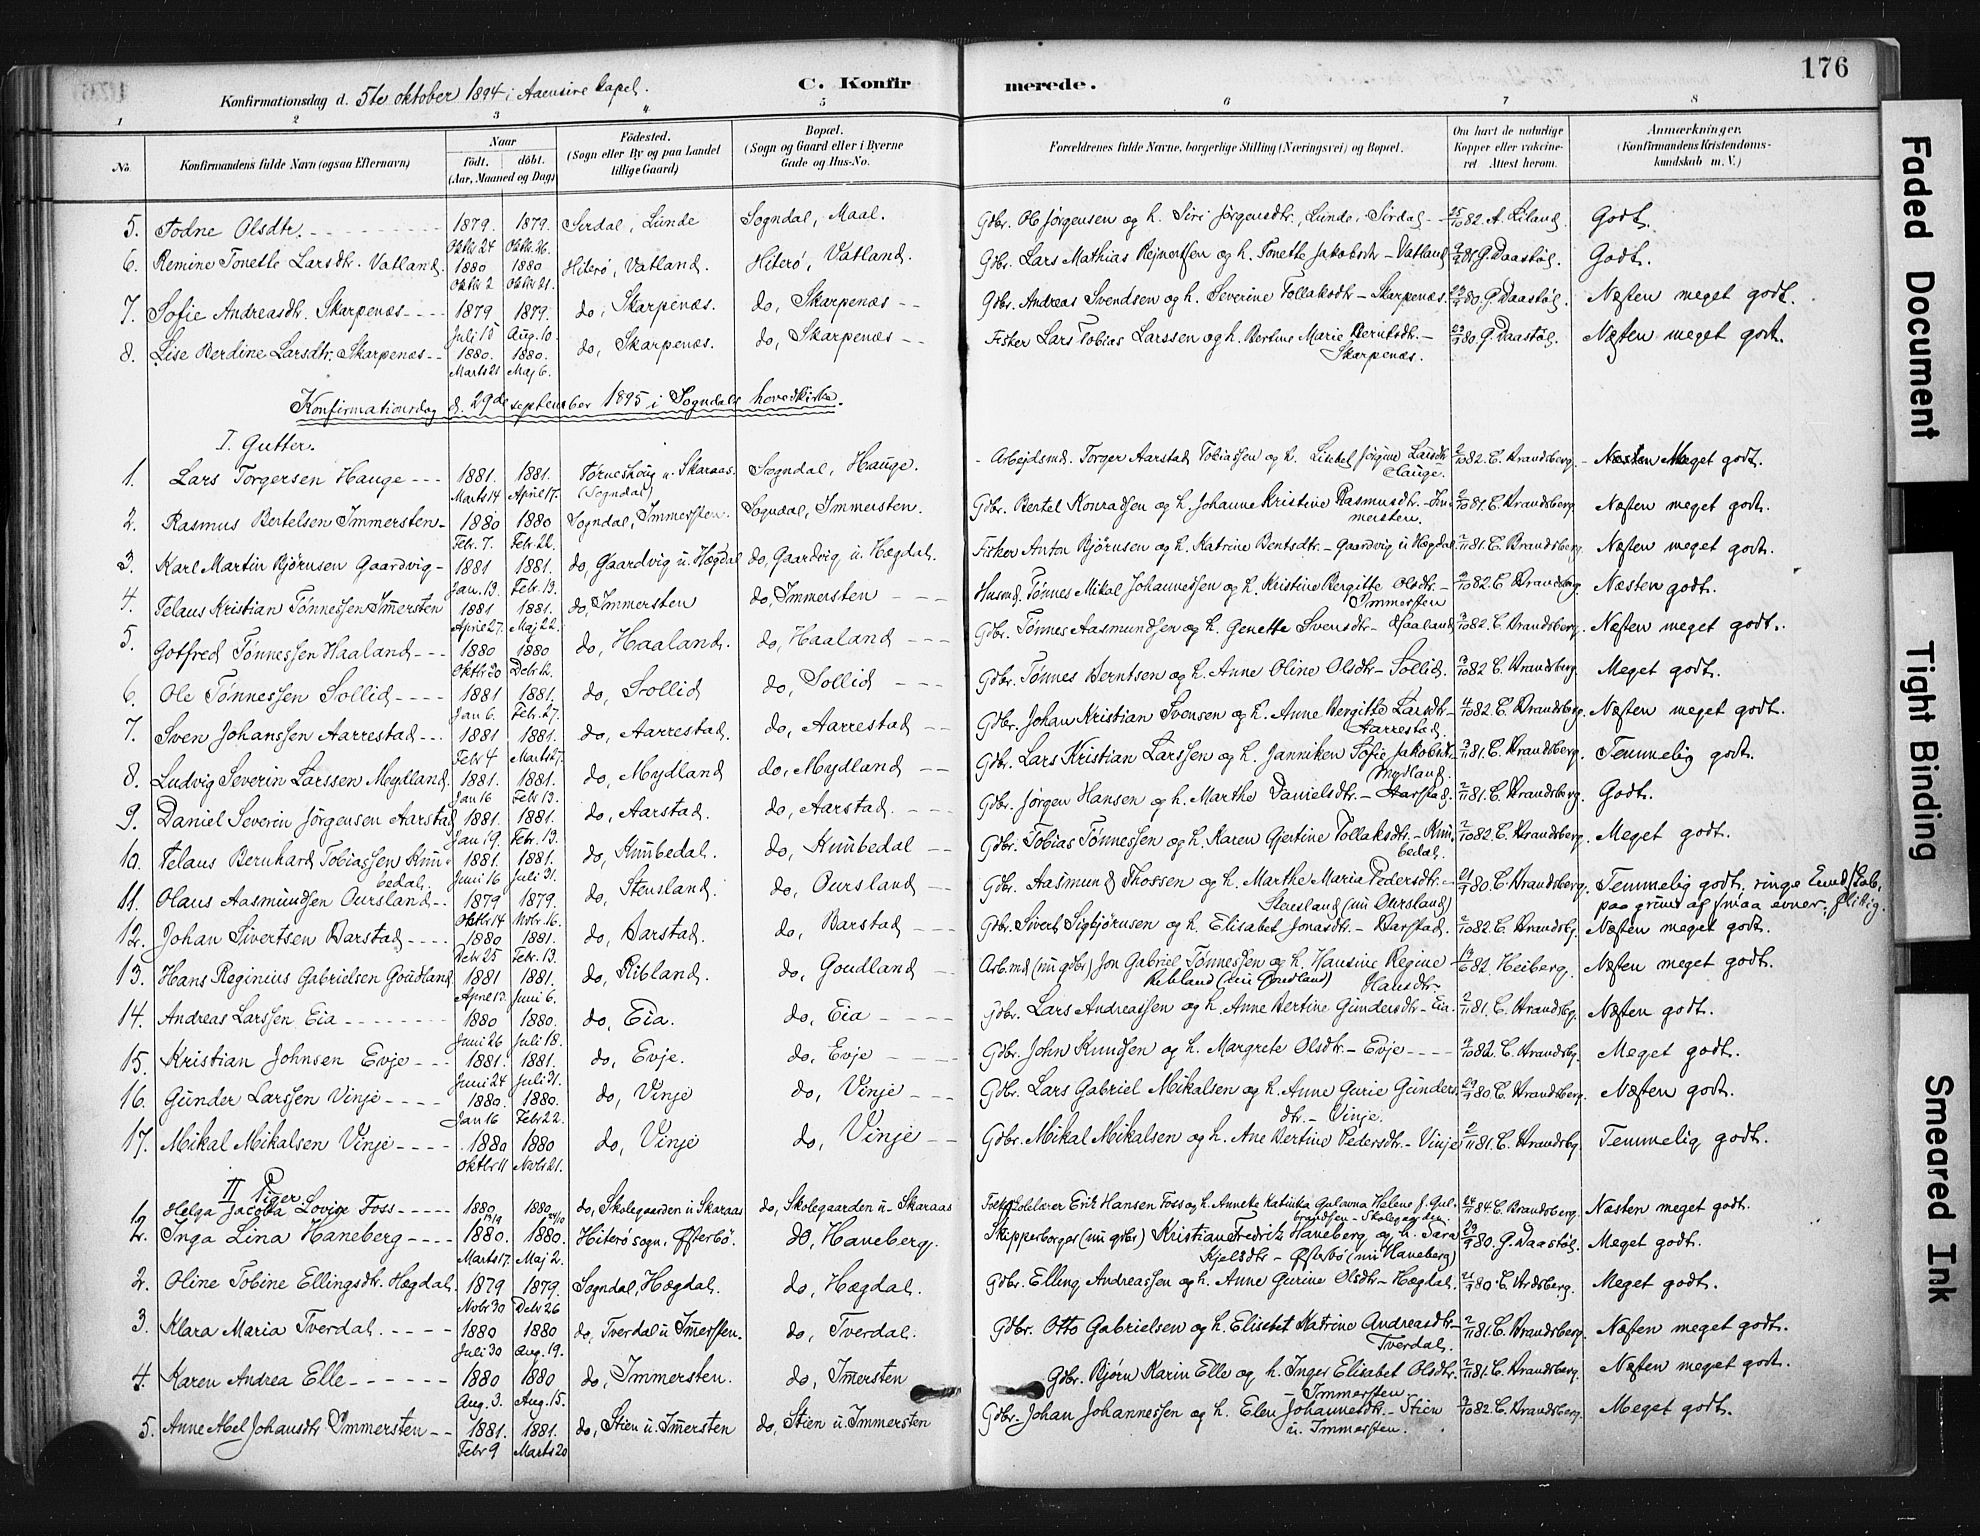 176
C. Konfirmerede.
Konfirmationsdag d. 5te oktober 1894 i Aaensire kapel.
1 2 3 4 5 6 7 8
No. Konfirmandens fulde Navn (ogsaa Efternavn) Naar födt. döbt. (Aar, Maaned og Dag) Födested. (Sogn eller By og paa Landet tillige Gaard) Bopæl. (Sogn og Gaard eller i Byerne Gade og Hus-No. Forældrenes fulde Navne, borgerlige Stilling (Næringsvei) og Bopæl. Om havt de naturlige Kopper eller vakcineret Attest herom. Anmærkninger. (Konfirmandens Kristendomskundskab m. V.)
5. Todne Olsdtr. 1879. Oktbr 24 1879. Oktbr. 26. Sirdal, Lunde Sogndal, Maal. Gdbr. Ole Jørgensen og h. Siri Jørgensdtr, Lunde, Sirdal 25/10 82. A. Liland. Godt.
6. Remine Tonette Larsdtr. Vatland. 1880 Oktbr 2 1880 Oktbr. 21. Hiterö, Vatland. Hiterö, Vatland. Gdbr. Lars Mathias Rejnertsen og h. Tonette Jakobsdr - Vatland 81 G. Daastöl. Godt.
7. Sofie Andreasdtr. Skarpenæs 1879 Juli 15 1879. Aug. 10. do, Skarpenæs. do, Skarpenæs Gdbr. Andreas Svendsen og h. Severine Tollaksdtr - Skarpenæs. 80. G. Daastöl. Næsten meget godt.
8. Lise Berdine Larsdtr. Skarpenæs 1880. Marts 21 1880. Maj 6. do, Skarpenæs. do, Skarpenæs Fisker Lars Tobias Larssen og h. Bertine Marie Berntsdtr. - Skarpenæs. 80. G. Daastöl. Næsten meget godt.
Konfirmationsdag d. 29de september 1895 i Sogndals hovedkirke.
I. Gutter.
1. Lars Torgersen Hauge 1881. Marts 14 1881. April 17. Törneshoug u. Skaraas. (Sogndal) Sogndal, Hauge. Arbejdsmd. Torger Aarstad Tobiassen og h. Lisebet Jørgine Larsdtr Hauge. 82. C. Brandsberg. Næsten Meget godt.
2. Rasmus Bertelsen Immersten 1880 Febr. 7. 1880 Febr. 22. Sogndal, Immersten. Sogndal, Immersten. Gdbr. Bertel Konradsen og h. Johanne Kristine Rasmusdtr. - Immersten. 81. C. Brandsberg. Næsten meget godt.
3. Karl Martin Björnsen Gaardvig 1881 Jan. 13. 1881. Febr. 13. do, Gaardvig u. Hægdal do, Gaardvig u. Hægdal. Fisker Anton Björnsen og h. Katrine Bentsdtr. - Gaardvig u Hægdal 81. C. Brandsberg. Næsten meget godt.
4. Telaus Kristian Tönnessen Immersten 1881 April 27. 1881. Maj 22. do, Immersten do, Immersten Husmd. Tönnes Mikal Johannessen og h. Kristine Bergitte Olsdtr. - Immersten 82. C. Brandsberg. Næsten godt.
5. Gotfred Tönnessen Haaland 1880 Oktbr 30 1880 Decbr 12. do, Haaland. do, Haaland Gdbr. Tönnes Aasmundsen og h. Genette Svensdtr - Haaland 82. C. Brandsberg. Næsten meget godt.
6. Ole Tönnessen Sollid 1881 Jan 6. 1881. Febr. 27. do, Sollid do, Sollid Gdbr. Tönnes Berntsen og h. Anne Oline Olsdtr - Sollid. 82 C. Brandsberg. Meget godt.
7. Sven Johanssen Aarrestad 1881 Febr 4 1881. Marts 27. do, Aarrestad do, Aarrestad Gdbr. Johan Kristian Svensen og h. Anne Bergitte Larsdtr - Aarrestad. 82. C. Brandsberg. Næsten meget godt.
8. Ludvig Severin Larssen Mydland 1881. Jan 16 1881. Febr 13. do, Mydland do, Mydland Gdbr. Lars Kristian Larssen og h. Janniken Sofie Jakobdtr. Mydland. 81. C. Brandsberg. Temmelig godt.
9. Daniel Severin Jörgensen Aarstad 1881. Jan. 19. 1881. Febr. 13. do, Aarstad. do, Aarstad. Gdbr. Jørgen Hansen og h. Marthe Danielsdtr. - Aarstad. 81. C. Brandsberg. Godt.
10. Telaus Bernhard Tobiassen Humbedal. 1881. Juni 16 1881. Juli 31. do, Humbedal. do, Humbedal Gdbr. Tobias Tönnessen og h. Karen Gjertine Tollaksdtr. - Humbedal. 82. C. Brandsberg. Meget godt.
11. Olaus Aasmundsen Oursland 1879 Oktbr. 14 1879. Novbr. 16. do, Stensland. do, Oursland Gdbr. Aasmund Thossen og h. Marthe Maria Pedersdtr. - Stensland (nu Oursland) 80. C. Brandsberg. Temmelig godt, ringe kundskab, paa grund af smaa evner, flittig.
12. Johan Sivertsen Barstad 1880 Debr 25 1881. Febr. 13. do, Barstad. do, Barstad Gdbr. Sivert Sigbjörnsen og h. Elisabet Jonasdtr. - Barstad. 82. C. Brandsbg. Næsten meget godt.
13. Hans Reginius Gabrielsen Goudland 1881 April 13. 1881. Juni 6. do, Ribland. do, Goudland Arb.md (nu gdbr) Jon Gabriel Tönnessen og h. Hansine Regine Hansdtr - Ribland (nu Goudland) 82. Heiberg. Næsten meget godt.
14. Andreas Larssen Eia 1880 Juni 26 1880. Juli 18. do, Eia. do, Eia Gdbr. Lars Andreassen og h. Anne Bertine Gundersdtr - Eia. 81. C. Brandsbg. Næsten godt.
15. Kristian Johnsen Evje 1881. Juni 24 1881. Juli 31. do, Evje. do, Evje Gdbr. John Knudsen og h. Margrete Olsdtr. - Evje 82. C. Brandsbg. Meget godt.
16. Gunder Larssen Vinje 1880. Jan 16 1880. Febr 22. do, Vinje do, Vinje Gdbr. Lars Gabriel Mikalsen og h. Anne Gurie Gundersdtr. - Vinje. 80 C. Brandsbg. Næsten godt.
17. Mikal Mikalsen Vinje 1880 Oktbr 11 1880 Novbr 21. do, Vinje do, Vinje Gdbr. Mikal Mikalsen og h. Ane Bertine Pedersdtr. - Vinje 81. C. Brandsbg. Temmelig godt.
II Piger
1. Helga Jacoba Lovise Foss 1880 1880 24/10 do, Skolegaarden u Skaraas do, Skolegaarden u. Skaraas Folkeskolelærer Erik Hansen Foss og h. Annette Katinka Helene f. Gulbrandsen - Skolegaarden. 84. C. Brandsberg. Næsten meget godt.
2. Inga Lina Haneberg 1880. Marts 17. 1880. Maj 2. Hiterö sogn. Östebö. do, Haneberg. Skipperborger (nu gdbr) Kristian Fredrik Haneberg og h. Sara Kjelsdtr - Östebö (nu Haneberg) 80. G. Daastöl. Meget godt.
2. Oline Tobine Ellingsdtr. Hægdal. 1879 Novbr 30 1879. Debr 26 Sogndal, Hægdal. do, Hægdal. Gdbr. Elling Andreassen og h. Anne Gurine Olsdtr - Hægdal. 80 C. Brdsberg. Meget godt.
3. Klara Maria Tverdal. 1880 Juli 30 1880 Aug. 19. do, Tverdal u Imersten. do, Tverdal. Gdbr. Otto Gabrielsen og h. Elisebet Katrine Andreasdtr - Tverdal. 81. C. Brandsberg. Næsten meget godt.
4. Karen Andrea Elle 1880 Aug. 3. 1880 Aug. 15. do, Immersten. do, Imersten Gdbr. Björn Karin Elle og h. Inger Elisabet Olsdtr. - Immersten. 81. C. Brandsberg. Næsten meget godt.
5. Anne Abel Johansdtr Immersten 1881. Febr 9 1881. Marts 20 do, Stien u. Imersten do, Stien u. Immersten Gdbr. Johan Johannessen og h. Elen Johannesdtr. - Stien u. Immersten. 82. C. Brandsberg. Meget godt.
Faded Document
Tight Binding
Smeared Ink